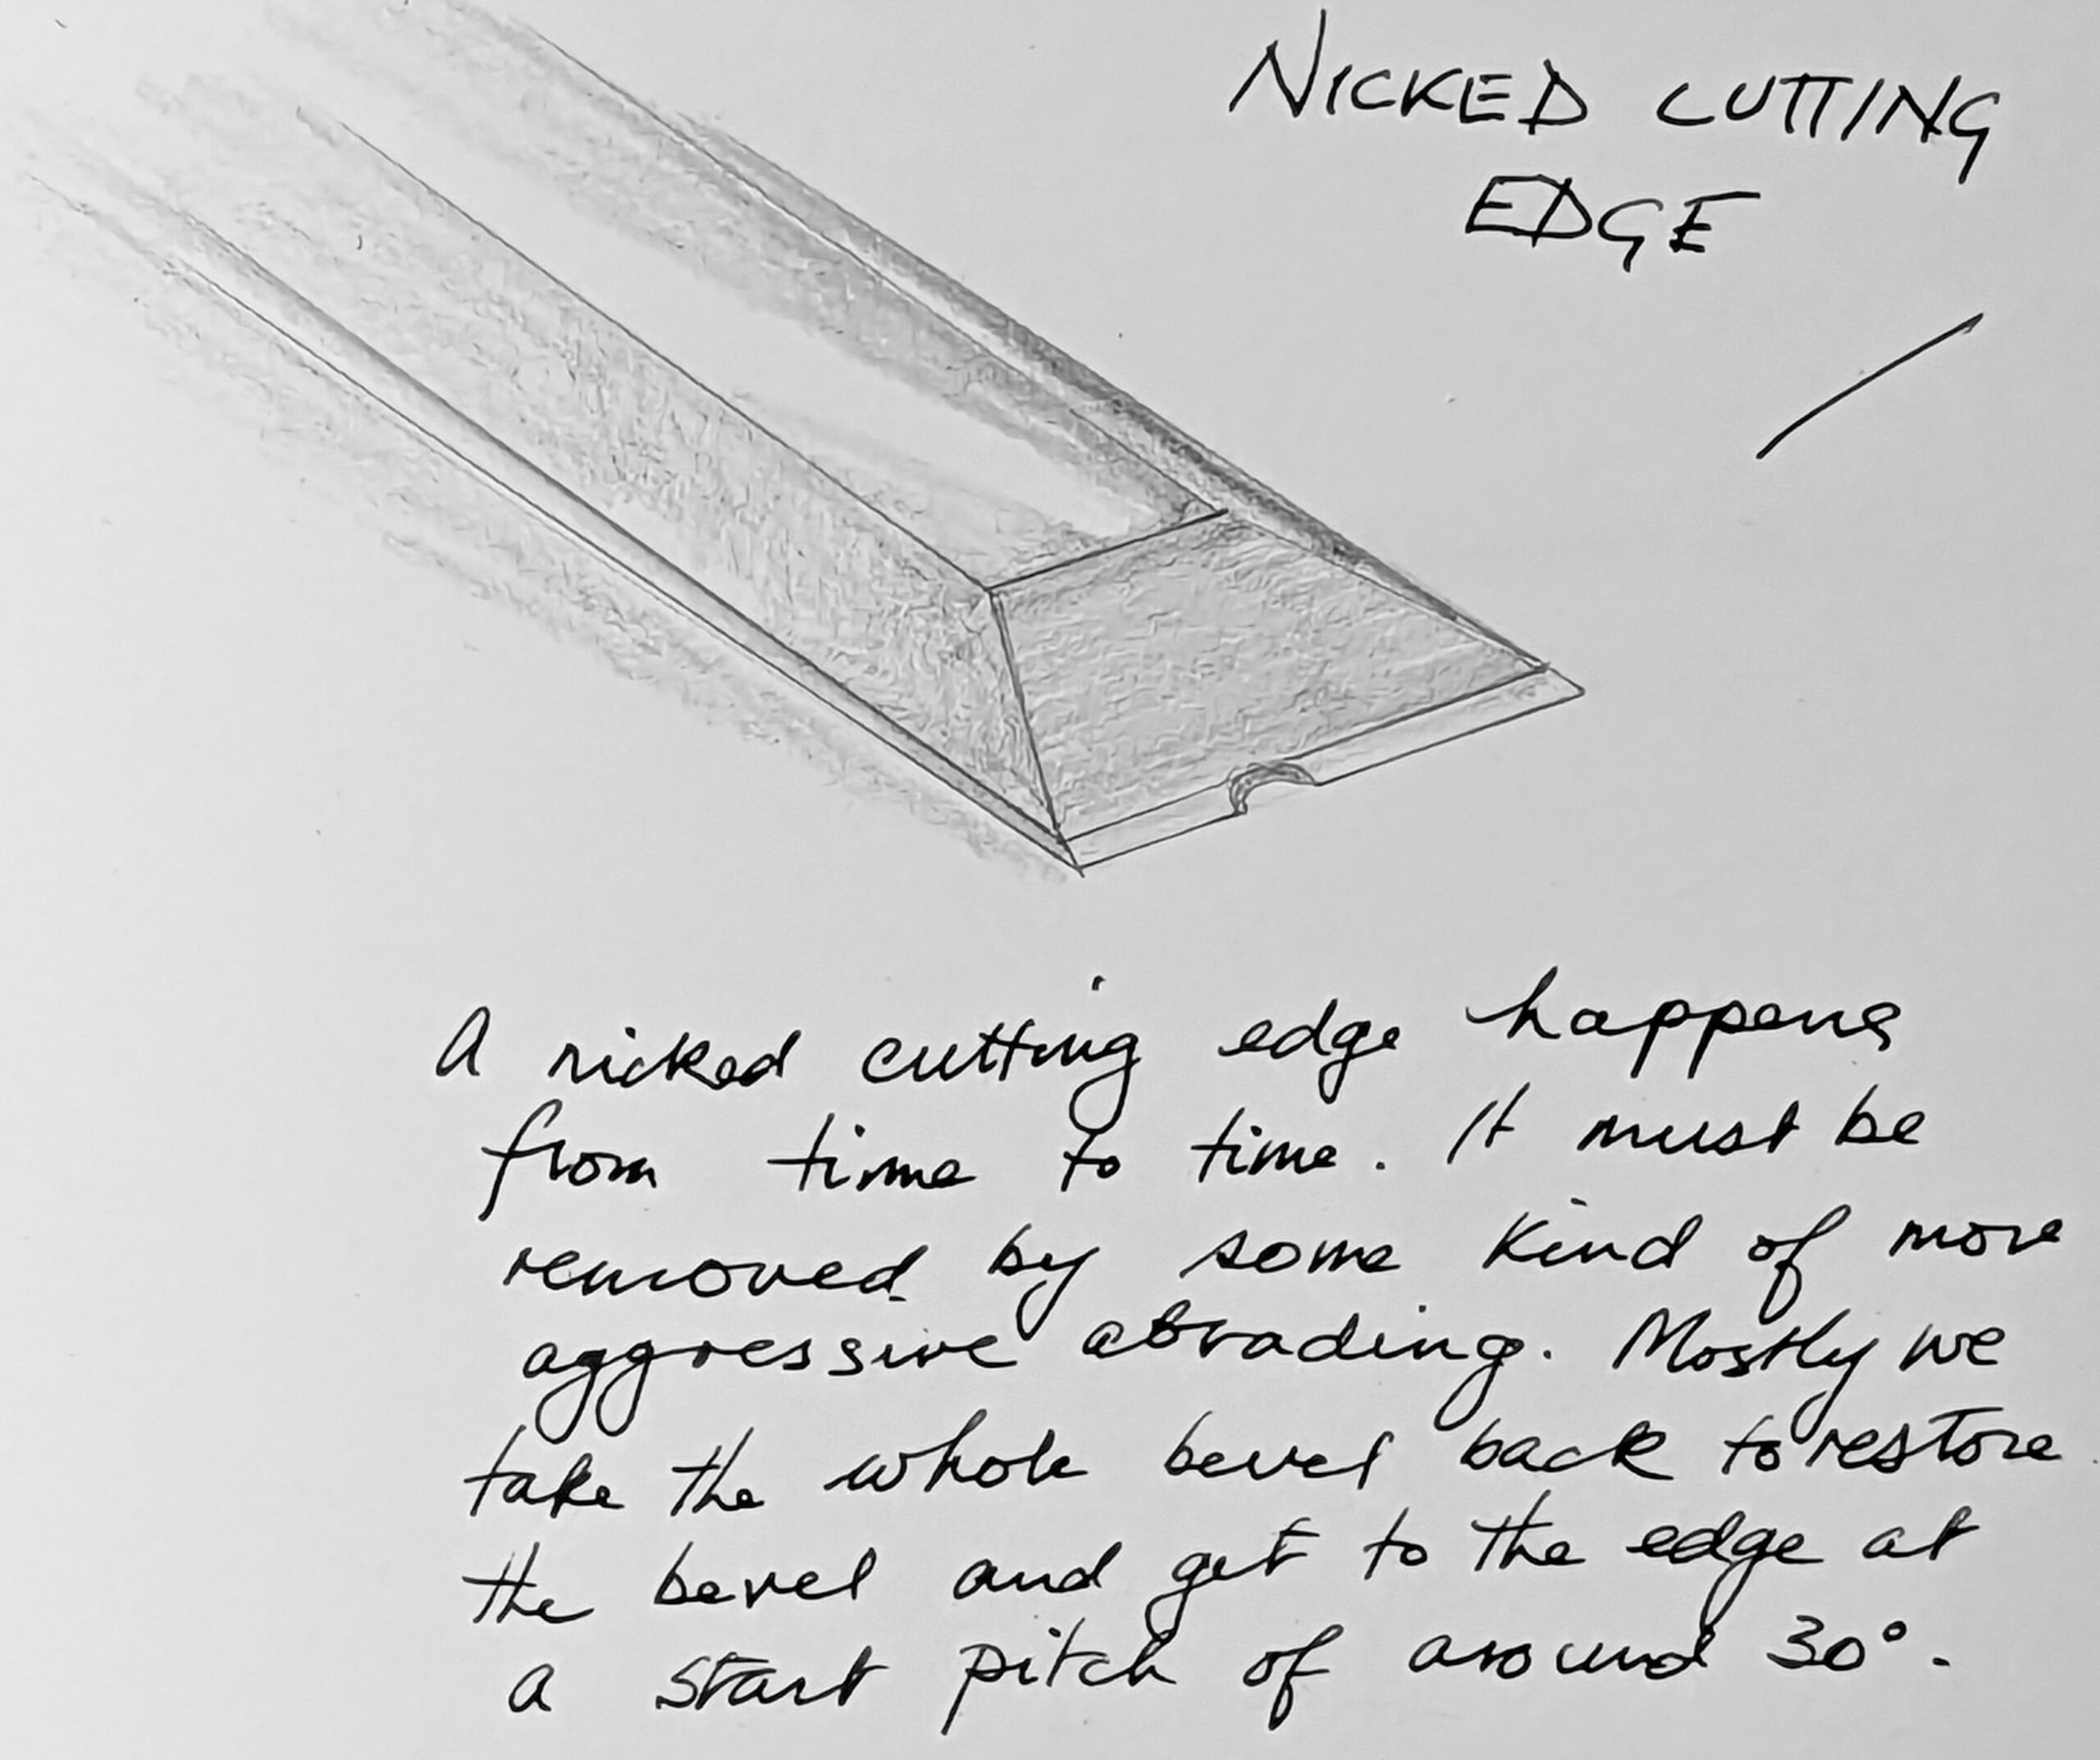 NICKED CUTTING
EDGE
A nicked cutting edge happens
from time to time. It must be
removed by some kind of more
aggressive abrading. Mostly we
take the whole bevel back to restore
the bevel and get to the edge at
a start pitch of around 30°.